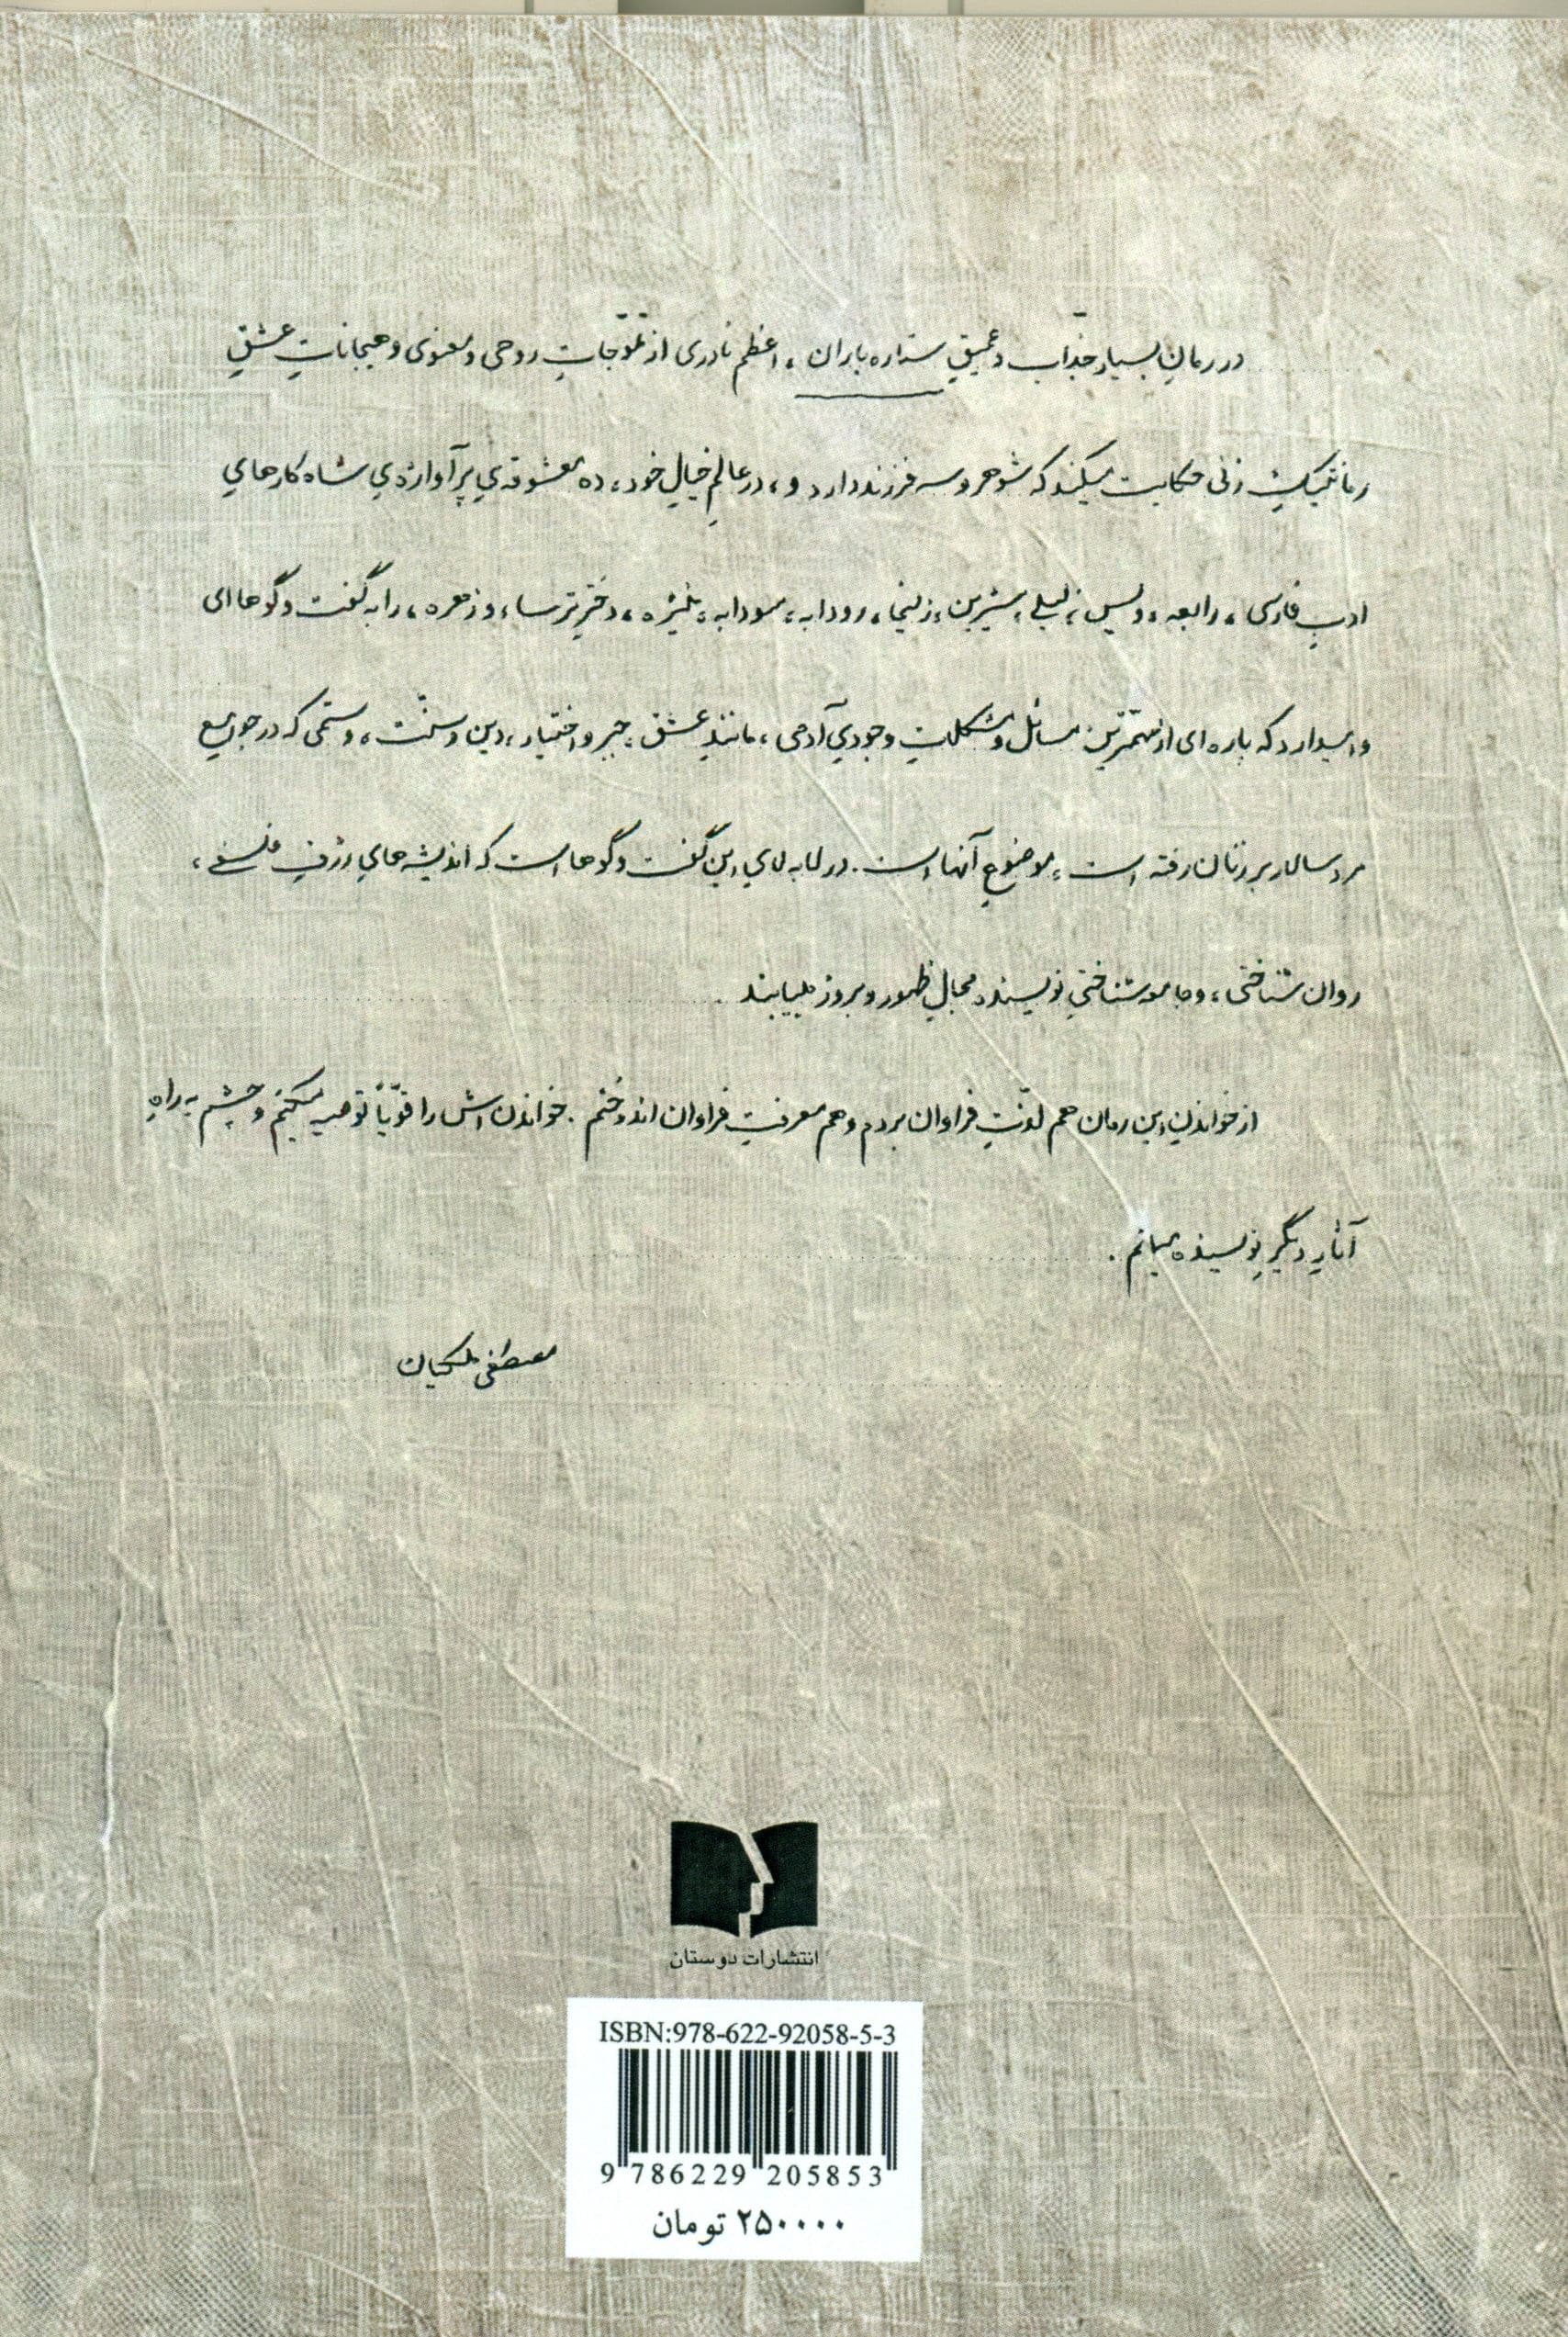 در رمانِ بسیار جذّاب و عمیقِ ستاره باران، اعظم نادری از تموّجاتِ روحی و معنوی و هیجاناتِ عشقِ
رمانتیکِ زنی حکایت میکند که شوهر و سه فرزند دارد و، در عالمِ خیالِ خود، ده معشوقه‌ي پُرآوازه‌ي شاه‌کارهايِ
ادبِ فارسی، رابعه، ویس، لیلی، شیرین، زلیخا، رودابه، سودابه، منیژه، دخترِ ترسا، و زهره، را به گفت و گوهاای
وامیدارد که پاره‌ای از مهمّترین مسائل و مشکلاتِ وجوديِ آدمی، مانندِ عشق، جبر و اختیار، دین و سنّت، و ستمی که در جوامع
مردسالار بر زنان رفته است، موضوعِ آنها است. در لابه‌لايِ این گفت و گوها است که اندیشه‌هايِ ژرفِ فلسفی،
روان‌شناختی، و جامعه‌شناختيِ نویسنده مجالِ ظهور و بروز مییابند.
از خواندنِ این رمان هم لذّتِ فراوان بردم و هم معرفتِ فراوان اندوختم. خواندن‌اش را قویّاً توصیه میکنم و چشم به راهِ
آثارِ دیگرِ نویسنده میمانم.
مصطفی ملکیان
انتشارات دوستان
ISBN:978-622-92058-5-3
9 786229 205853
۲۵۰۰۰۰ تومان